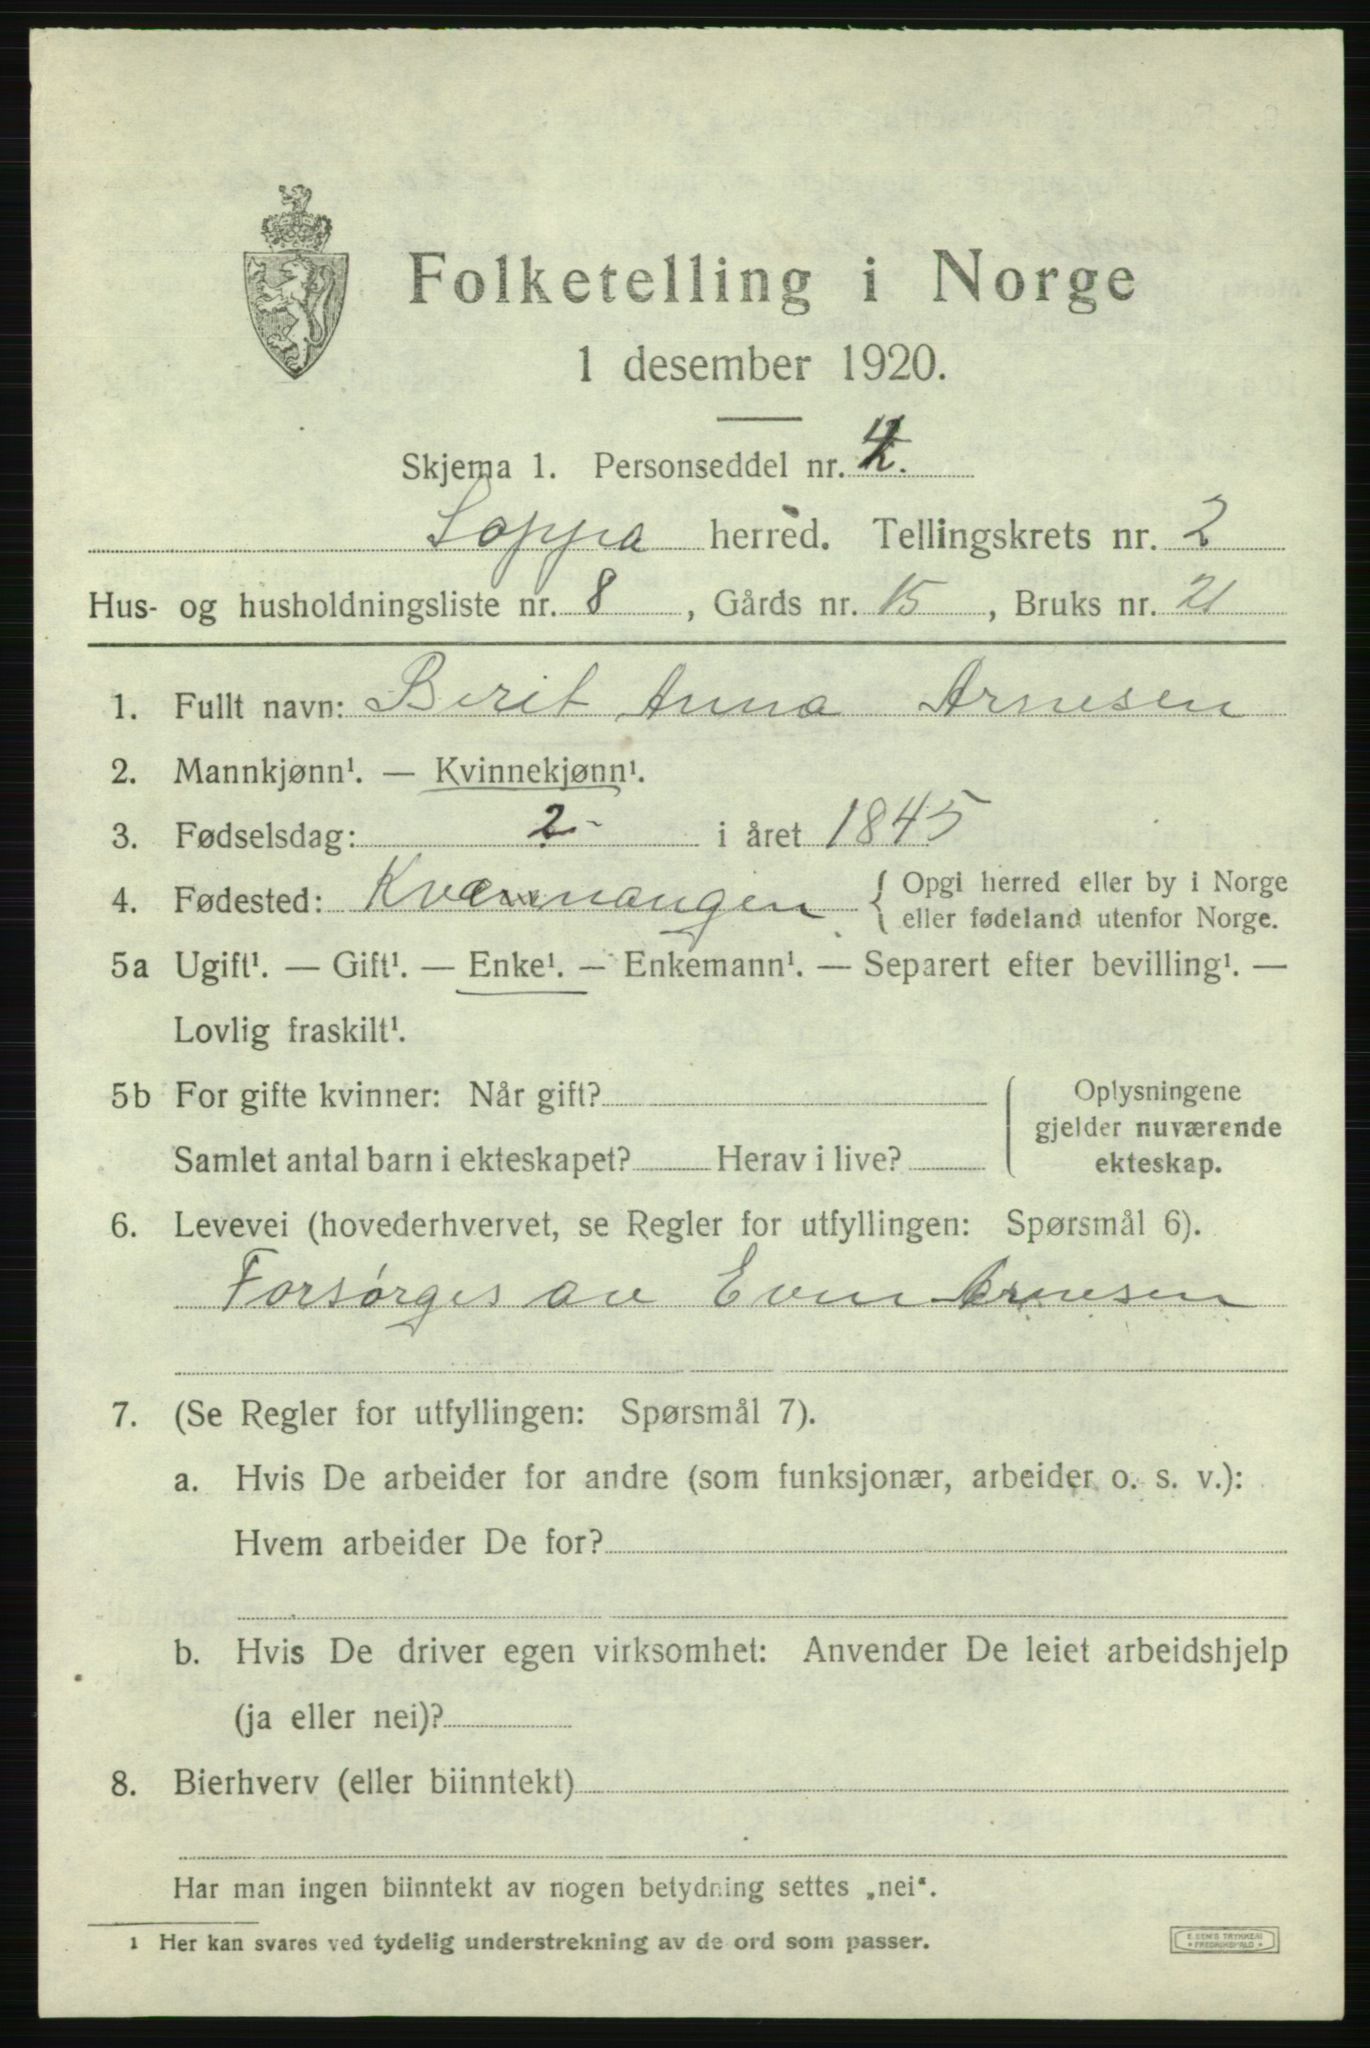 Folketelling i Norge
1 desember 1920.
Skjema 1. Personseddel nr. 4.
Loppa herred. Tellingskrets nr. 2
Hus- og husholdningsliste nr. 8, Gårds nr. 15, Bruks nr. 21
1. Fullt navn: Berit Anna Arnesen
2. Mannkjønn¹. — Kvinnekjønn¹.
3. Fødselsdag: 2- i året 1845
4. Fødested: Kvænnangen { Opgi herred eller by i Norge
eller fødeland utenfor Norge.
5a Ugift¹. — Gift¹. — Enke¹. — Enkemann¹. — Separert efter bevilling¹. —
Lovlig fraskilt¹.
5b For gifte kvinner: Når gift? Oplysningene
gjelder nuværende
Samlet antal barn i ekteskapet? Herav i live? ekteskap.
6. Levevei (hovederhvervet, se Regler for utfyllingen: Spørsmål 6).
Forsørges av Even Arnesen
7. (Se Regler for utfyllingen: Spørsmål 7).
a. Hvis De arbeider for andre (som funksjonær, arbeider o. s. v.):
Hvem arbeider De for?
b. Hvis De driver egen virksomhet: Anvender De leiet arbeidshjelp
(ja eller nei)?
8. Bierhverv (eller biinntekt)
Har man ingen biinntekt av nogen betydning settes „nei“.
¹ Her kan svares ved tydelig understrekning av de ord som passer.